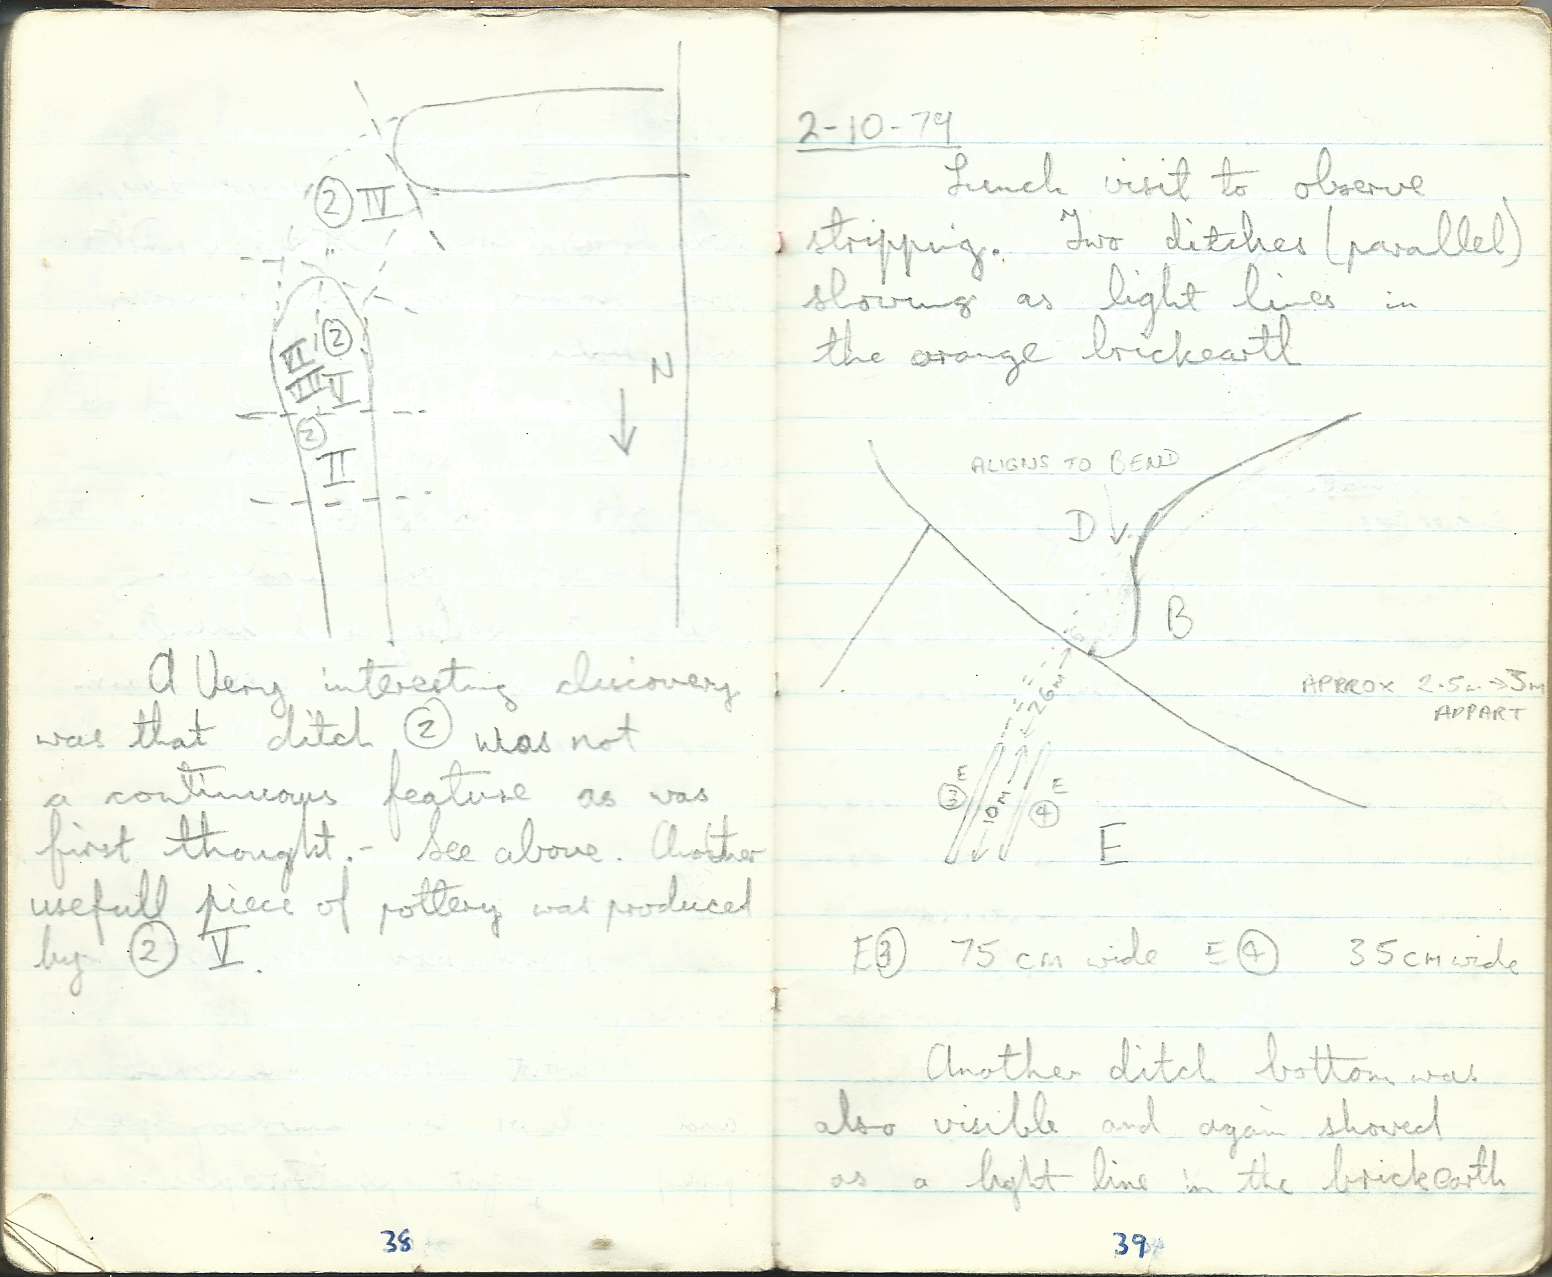 ② IV
VI ②
VII V
②
II
N
A Very interesting discovery
was that ditch ② was not
a continuous feature as was
first thought. - See above. Another
usefull piece of pottery was produced
by ② V.
38
2-10-79
Lunch visit to observe
stripping. Two ditches (parallel)
showing as light lines in
the orange brickearth
ALIGNS TO BEND
D
B
26m
APPROX 2.5m → 3M
APPART
E
③
10M
E
④
E
E③ 75 cm wide E④ 35cm wide
Another ditch bottom was
also visible and again showed
as a light line in the brickearth
39